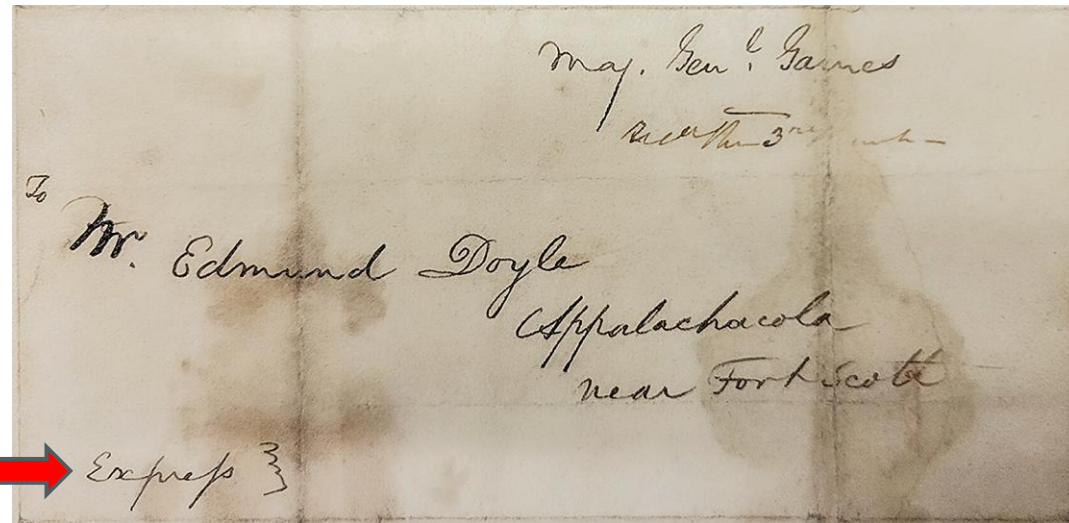 Maj. Genl. Gaines
3rd
To
Mr. Edmund Doyle
Appalachacola
near Fort Scott
Express